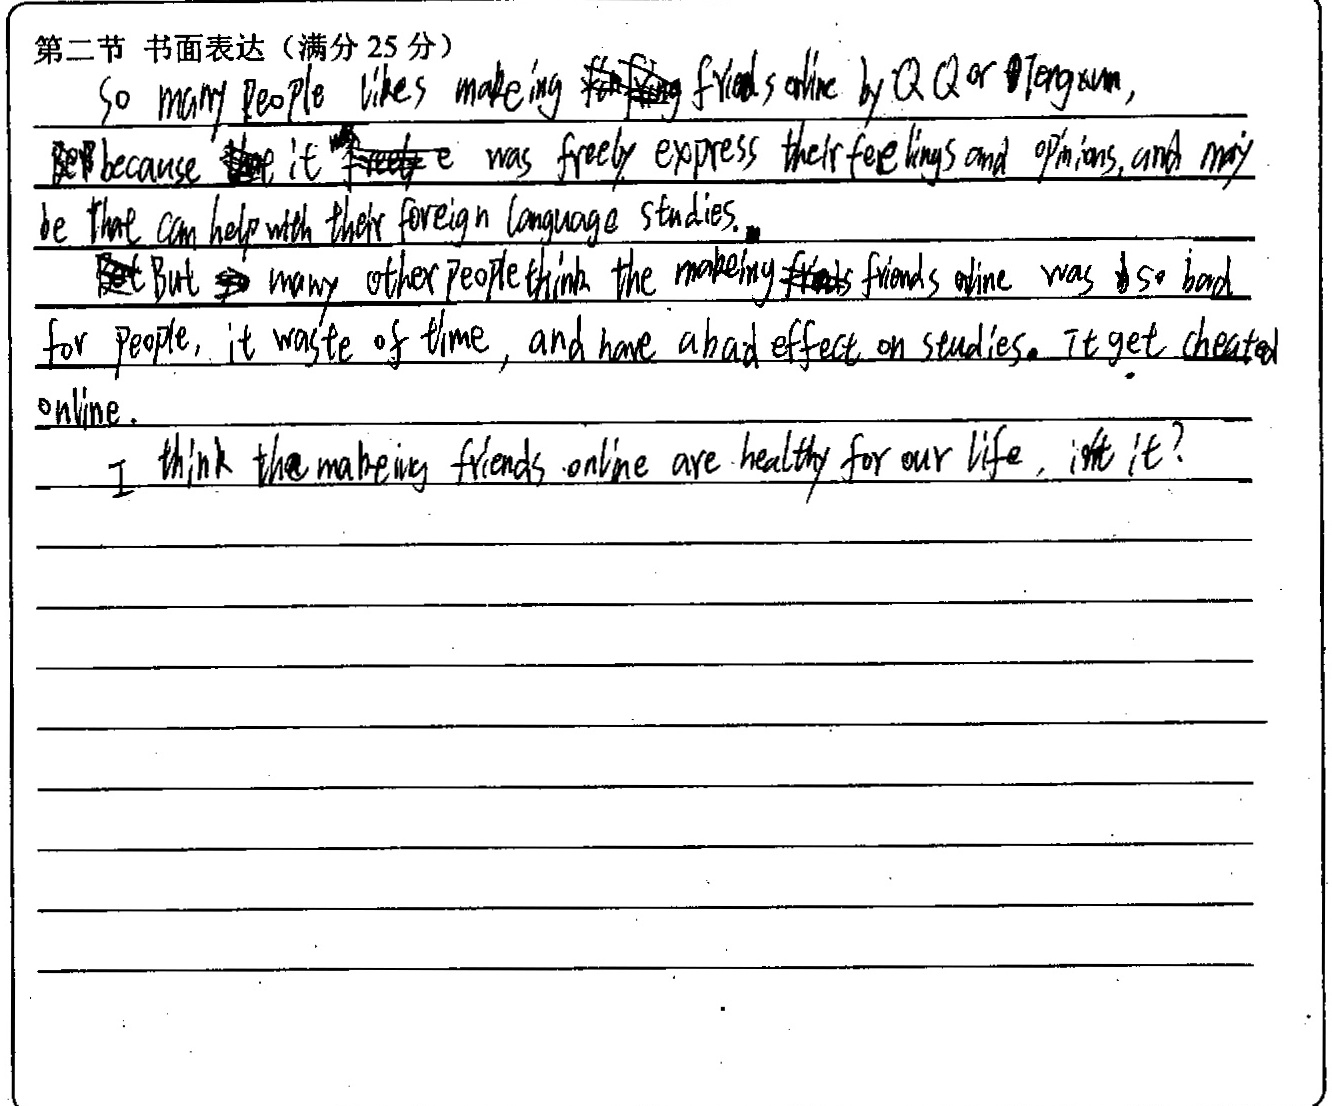 第二节 书面表达（满分 25 分）
So many people likes makeing friends online by QQ or Tengxun,
because it was freely express their feelings and opinions, and may
be that can help with their foreign language studies.
But many other people think the makeing friends online was so bad
for people, it waste of time, and have a bad effect on studies. It get cheated
online.
I think the makeing friends online are healthy for our life, isn't it?